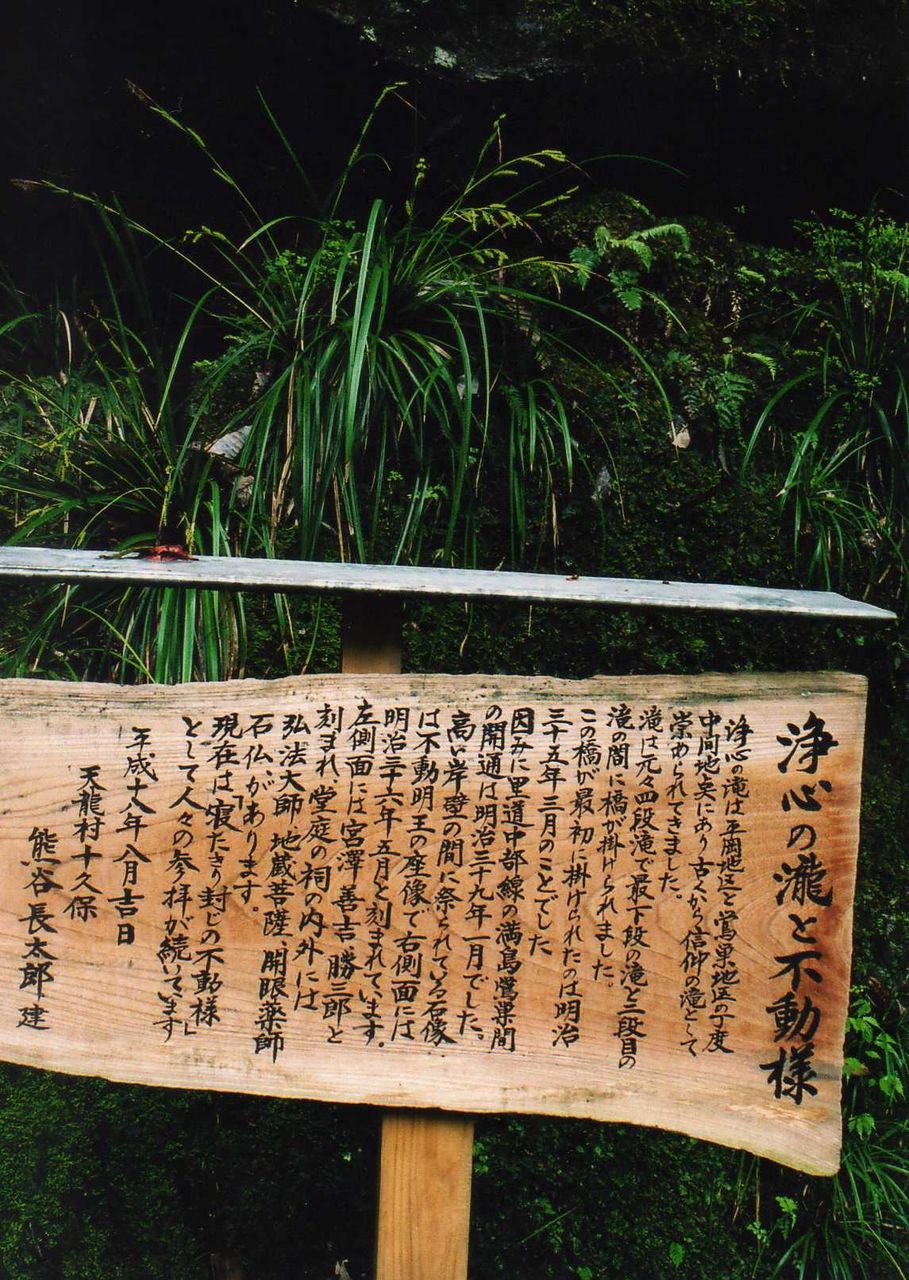 浄心の瀧と不動様
浄心の滝は平岡地区と鴬巣地区の丁度
中間地点にあり古くから信仰の滝として
崇められてきました。
滝は元々四段滝で最下段の滝と二段目の
滝の間に橋が掛けられました。
この橋が最初に掛けられたのは明治
三十五年三月のことでした
因みに里道中部線の満島鴬巣間
の開通は明治三十九年一月でした。
高い岸壁の間に祭られている石像
は不動明王の座像で右側面には
明治三十六年五月と刻まれています。
左側面には宮澤善吉、勝三郎と
刻まれ、堂庭の祠の内外には
弘法大師、地蔵菩薩、開眼薬師
石仏があります。
現在は「寝たきり封じの不動様」
として人々の参拝が続いています
平成十八年八月吉日
天龍村十久保
熊谷長太郎建